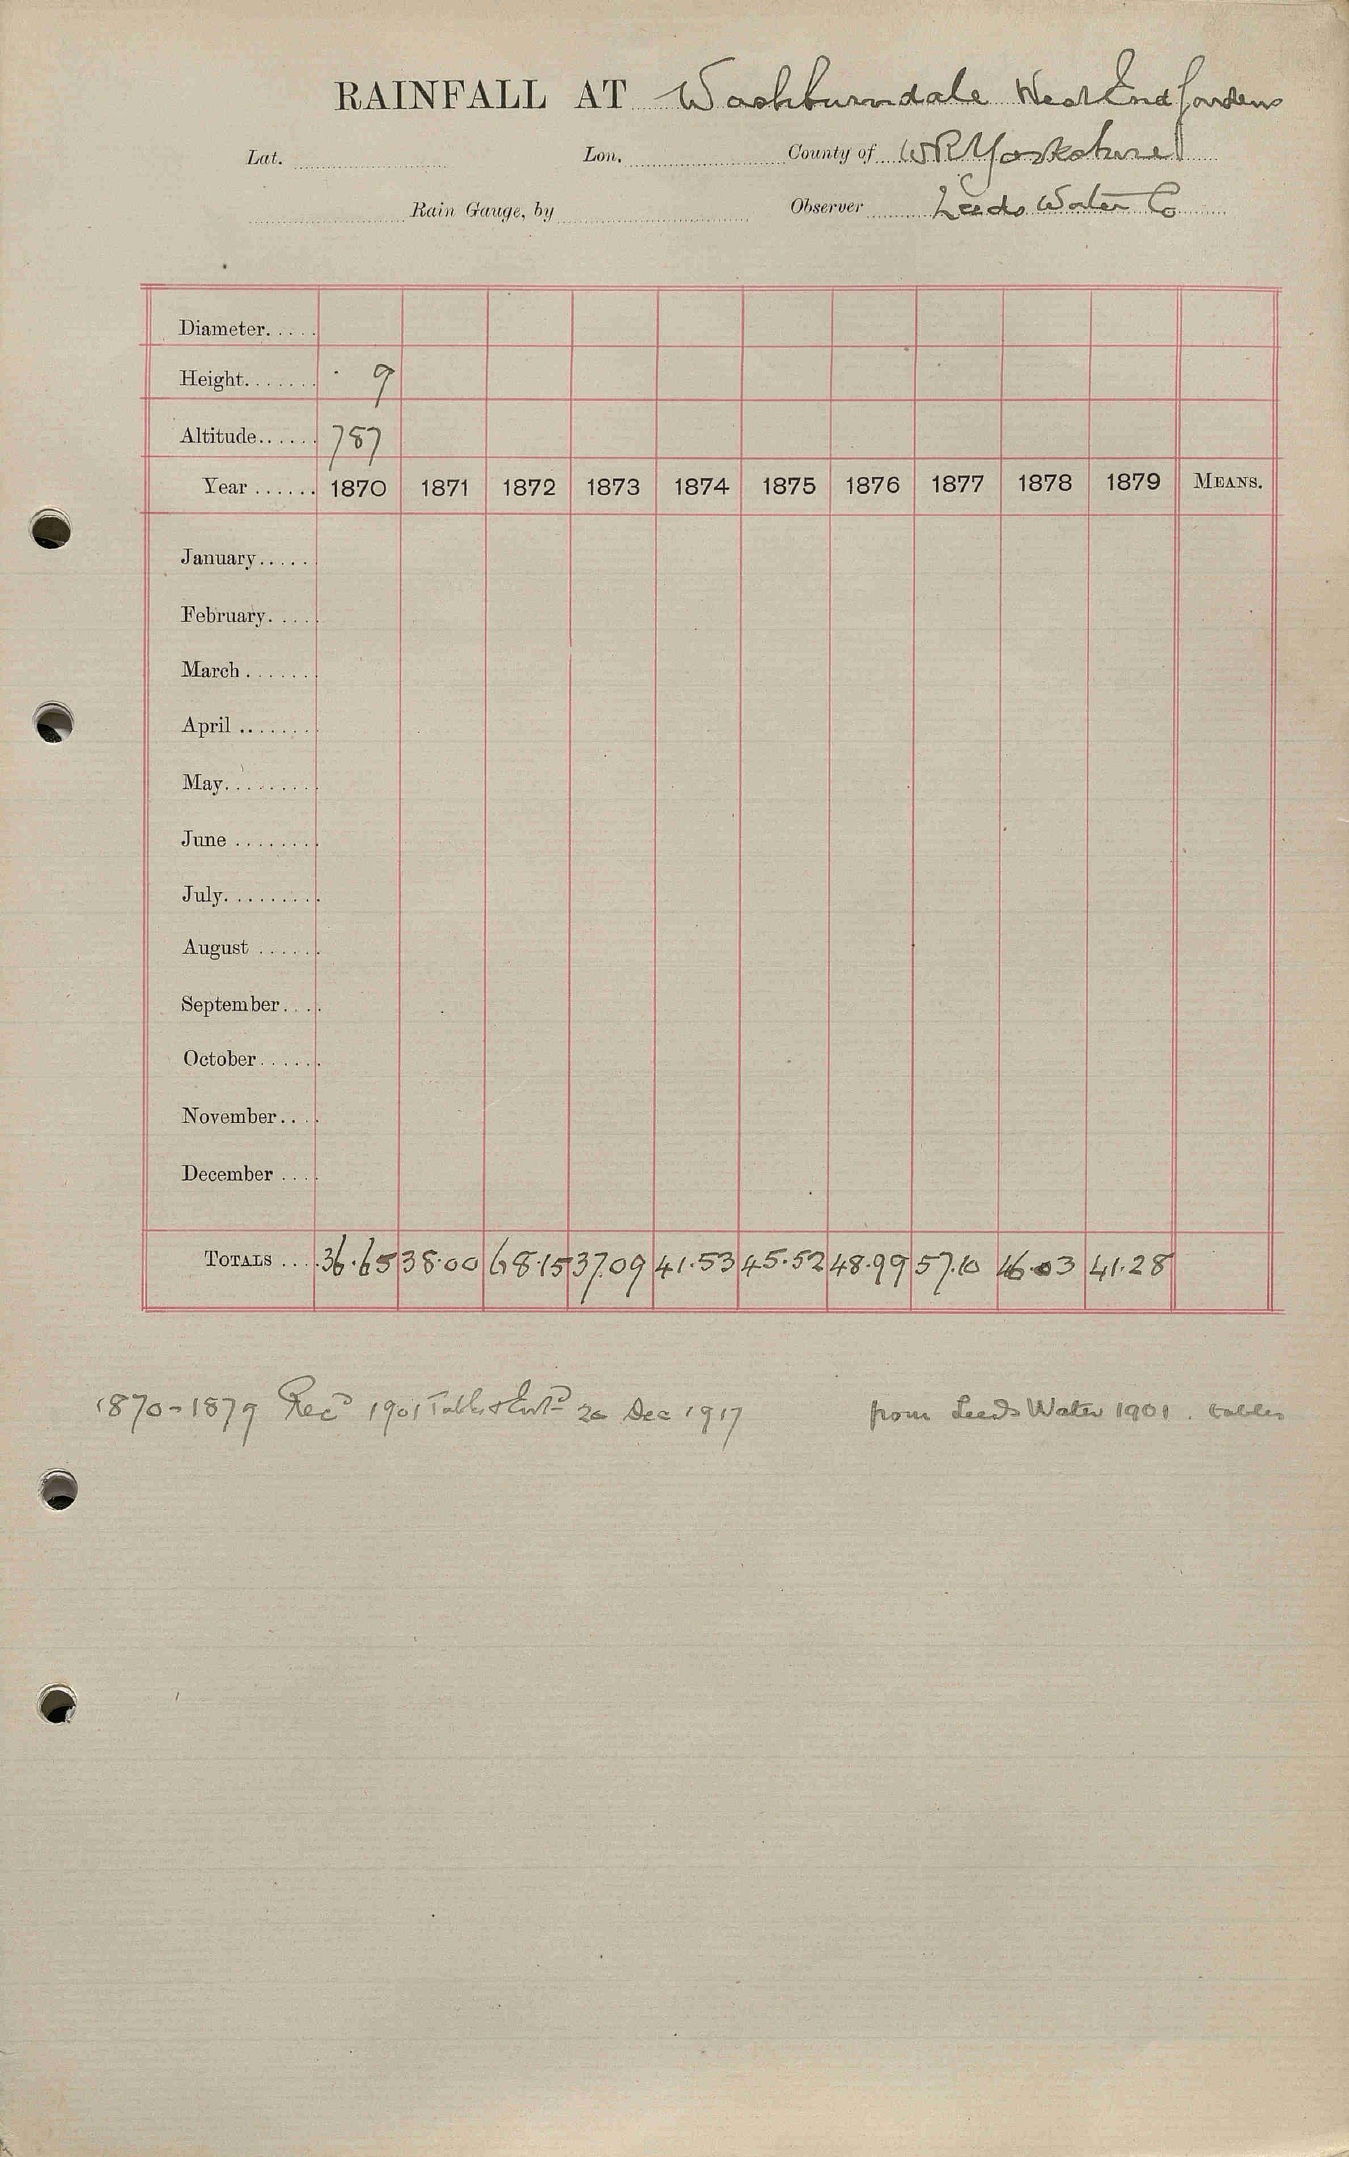 RAINFALL AT Washburndale West End Gardens
Lat. Lon. County of W R Yorkshire
Rain Gauge, by Observer Leeds Water Co
Diameter.....
Height....... 9
Altitude...... 787
Year ...... 1870 1871 1872 1873 1874 1875 1876 1877 1878 1879 MEANS.
January.....
February.....
March .......
April ........
May.........
June ........
July.........
August ......
September....
October......
November....
December ....
TOTALS .... 36.65 38.00 68.15 37.09 41.53 45.52 48.99 57.10 46.03 41.28
1870-1879 Recd 1901 Tables & Entd Dec 1917 from Leeds Water 1901. tables